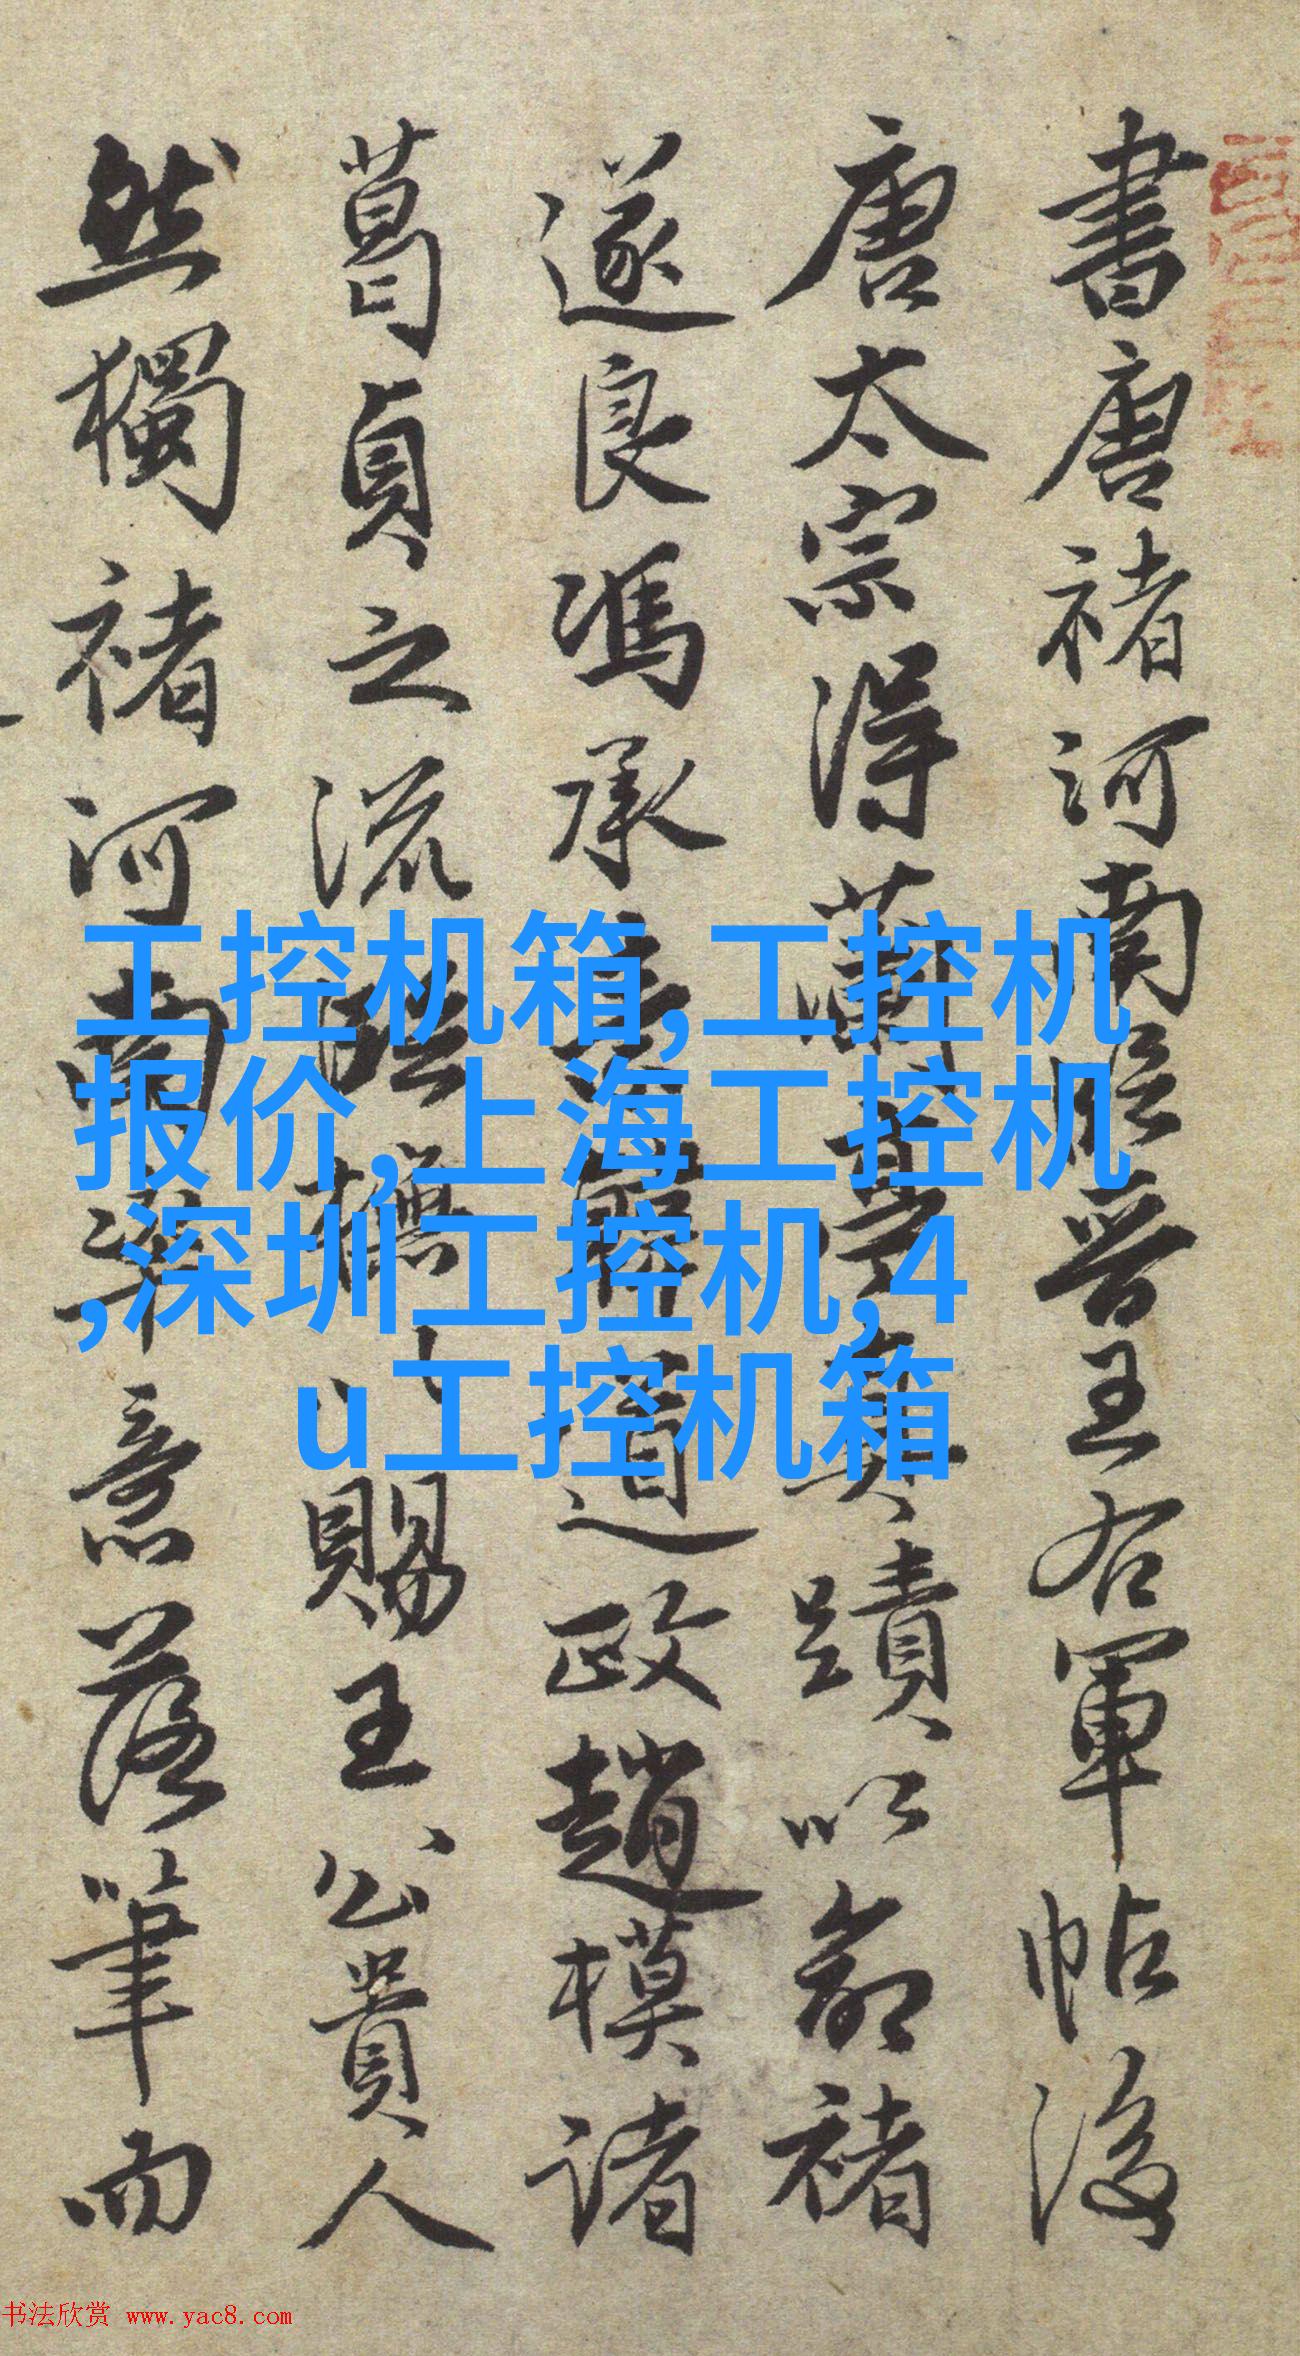 書唐褚河南臨晉王右軍帖後
唐太宗得蘭亭真蹟以命褚
遂良馮承素韓道政趙模諸
葛貞之流搨橅以賜王公貴人
然獨褚河南率意落筆而
工控机箱,工控机
报价,上海工控机
,深圳工控机,4
u工控机箱
书法欣赏 www.yac8.com